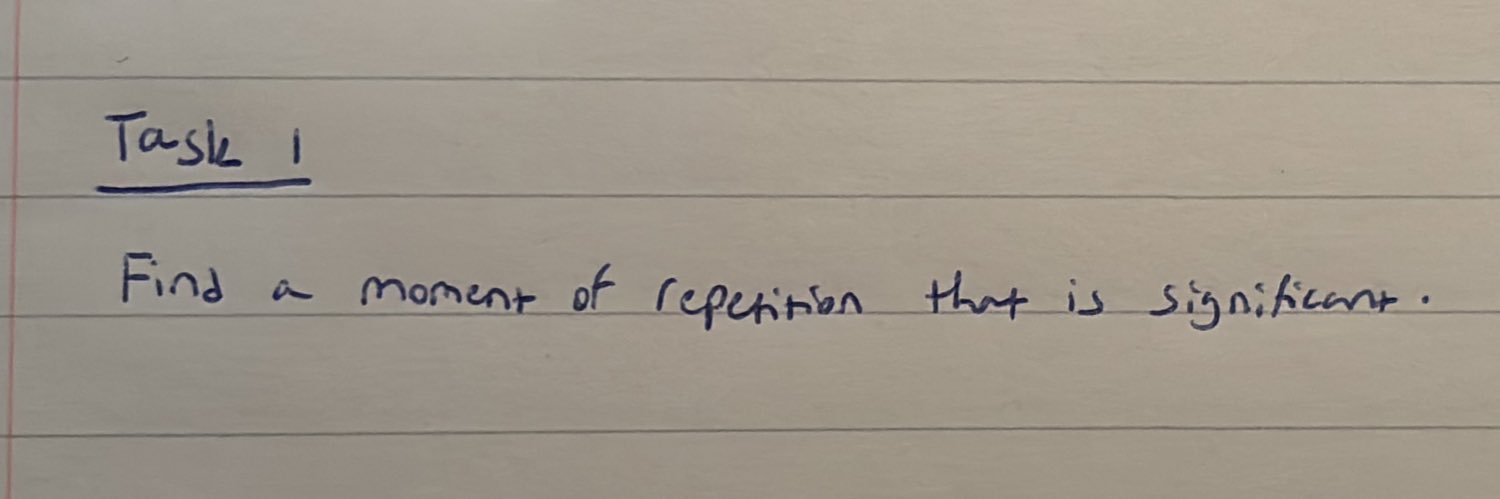 Task 1
Find a moment of repetition that is significant.